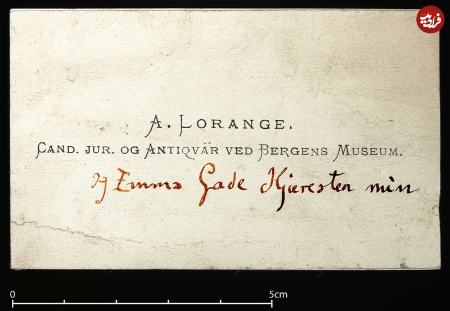 فرادید
A. LORANGE.
CAND. JUR. OG ANTIQVÄR VED BERGENS MUSEUM.
og Emma Gade Kjæresten min
0 5cm